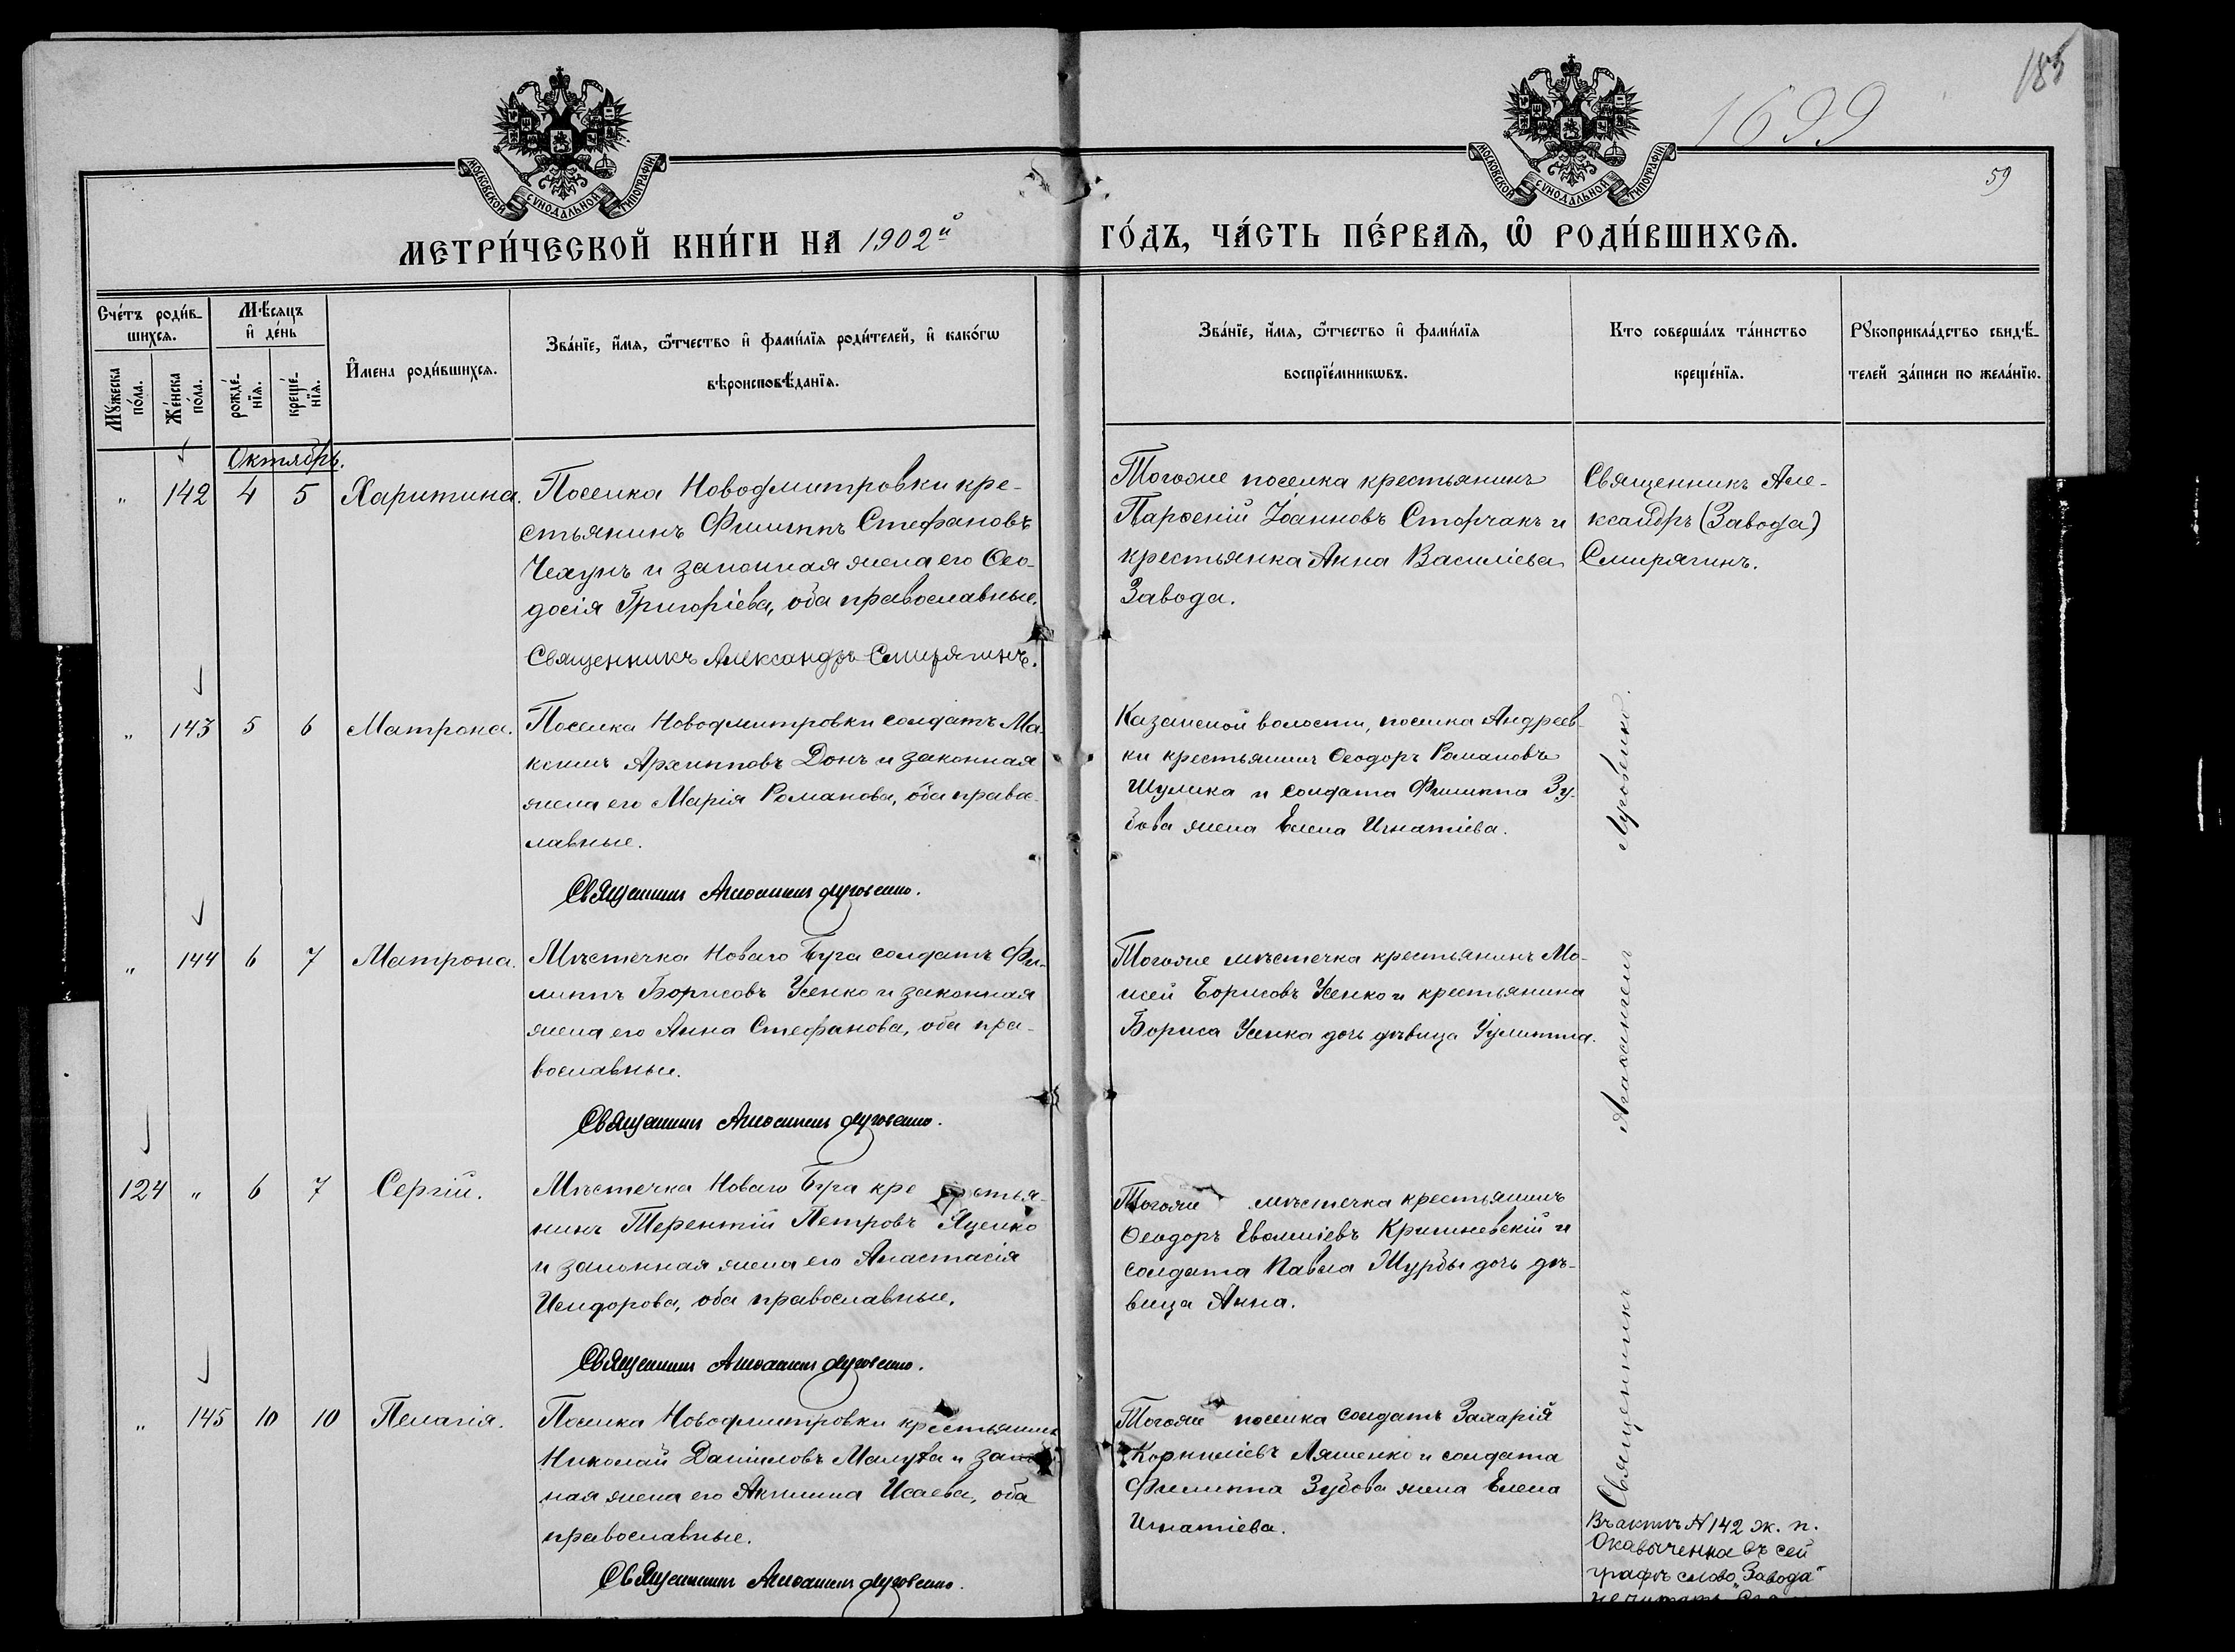 185
1699
59
МОСКОВСКОЙ СѴНОДАЛЬНОЙ ТИПОГРАФІИ
МОСКОВСКОЙ СѴНОДАЛЬНОЙ ТИПОГРАФІИ
МЕТРИ́ЧЕСКОЙ КНИ́ГИ НА 1902й
ГО́ДЪ, ЧА́СТЬ ПЕ́РВАѦ, Ѽ РОДИ́ВШИХСѦ.
Сче́тъ роди́в-
шихсѧ.
Мꙋ́жеска по́ла.
Же́нска по́ла.
Мѣ́сѧцъ и҆ де́нь
рожде́-нїѧ.
креще́-нїѧ.
И҆мена роди́вшихсѧ.
Зва́нїе, и҆́мѧ, ѻ҆́тчество и҆ фами́лїѧ роди́телей, и҆ како́гѡ
вѣроисповѣ́данїѧ.
Зва́нїе, и҆́мѧ, ѻ҆́тчество и҆ фами́лїѧ
воспрїе́мникѡвъ.
Кто соверша́лъ та́инство
креще́нїѧ.
Рꙋкоприкла́дство свидѣ́-
телей за́писи по жела́нїю.
Октябрь.
" 142 4 5 Харитина.
Поселка Новодмитровки кре-
стьянинъ Филиппъ Стефановъ
Чехунъ и законная жена его Ѳео-
досія Григоріева, оба православные.
Священникъ Александръ Смирягинъ.
Тогоже поселка крестьянинъ
Парѳеній Іоанновъ Сторчакъ и
крестьянка Анна Василіева
Завода.
Священникъ Але-
ксандръ (Завода)
Смирягинъ.
" 143 5 6 Матрона.
Поселка Новодмитровки солдатъ Ма-
ксимъ Архипповъ Донъ и законная
жена его Марія Романова, оба правос-
лавные.
Священникъ Луговенко.
Казанской волости, поселка Андреев-
ки крестьянинъ Ѳеодоръ Романовъ
Шулика и солдата Филиппа Зу-
бова жена Елена Игнатіева.
" 144 6 7 Матрона.
Мѣстечка Новаго Буга солдатъ Фи-
липпъ Борисовъ Усенко и законная
жена его Анна Стефанова, оба пра-
вославные.
Священникъ Луговенко.
Тогоже мѣстечка крестьянинъ Мо-
исей Борисовъ Усенко и крестьянина
Бориса Усенка дочь дѣвица Іулитта.
124 " 6 7 Сергій.
Мѣстечка Новаго Буга кре стья-
нинъ Терентій Петровъ Яценко
и законная жена его Анастасія
Исидорова, оба православные.
Священникъ Луговенко.
Тогоже мѣстечка крестьянинъ
Ѳеодоръ Евѳиміевъ Кришневскій и
солдата Павла Журбы дочь дѣ-
вица Анна.
" 145 10 10 Пелагія.
Поселка Новодмитровки крестьянинъ
Николай Даніиловъ Малута и закон
ная жена его Акилина Исаева, оба
православные.
Священникъ Луговенко.
Тогоже поселка солдатъ Захарій
Корниліевъ Ляшенко и солдата
Филиппа Зубова жена Елена
Игнатіева.
Священникъ Луговенко.
Въ актѣ № 142 ж. п.
Окавыченна въ сей
графѣ слово „Завода"